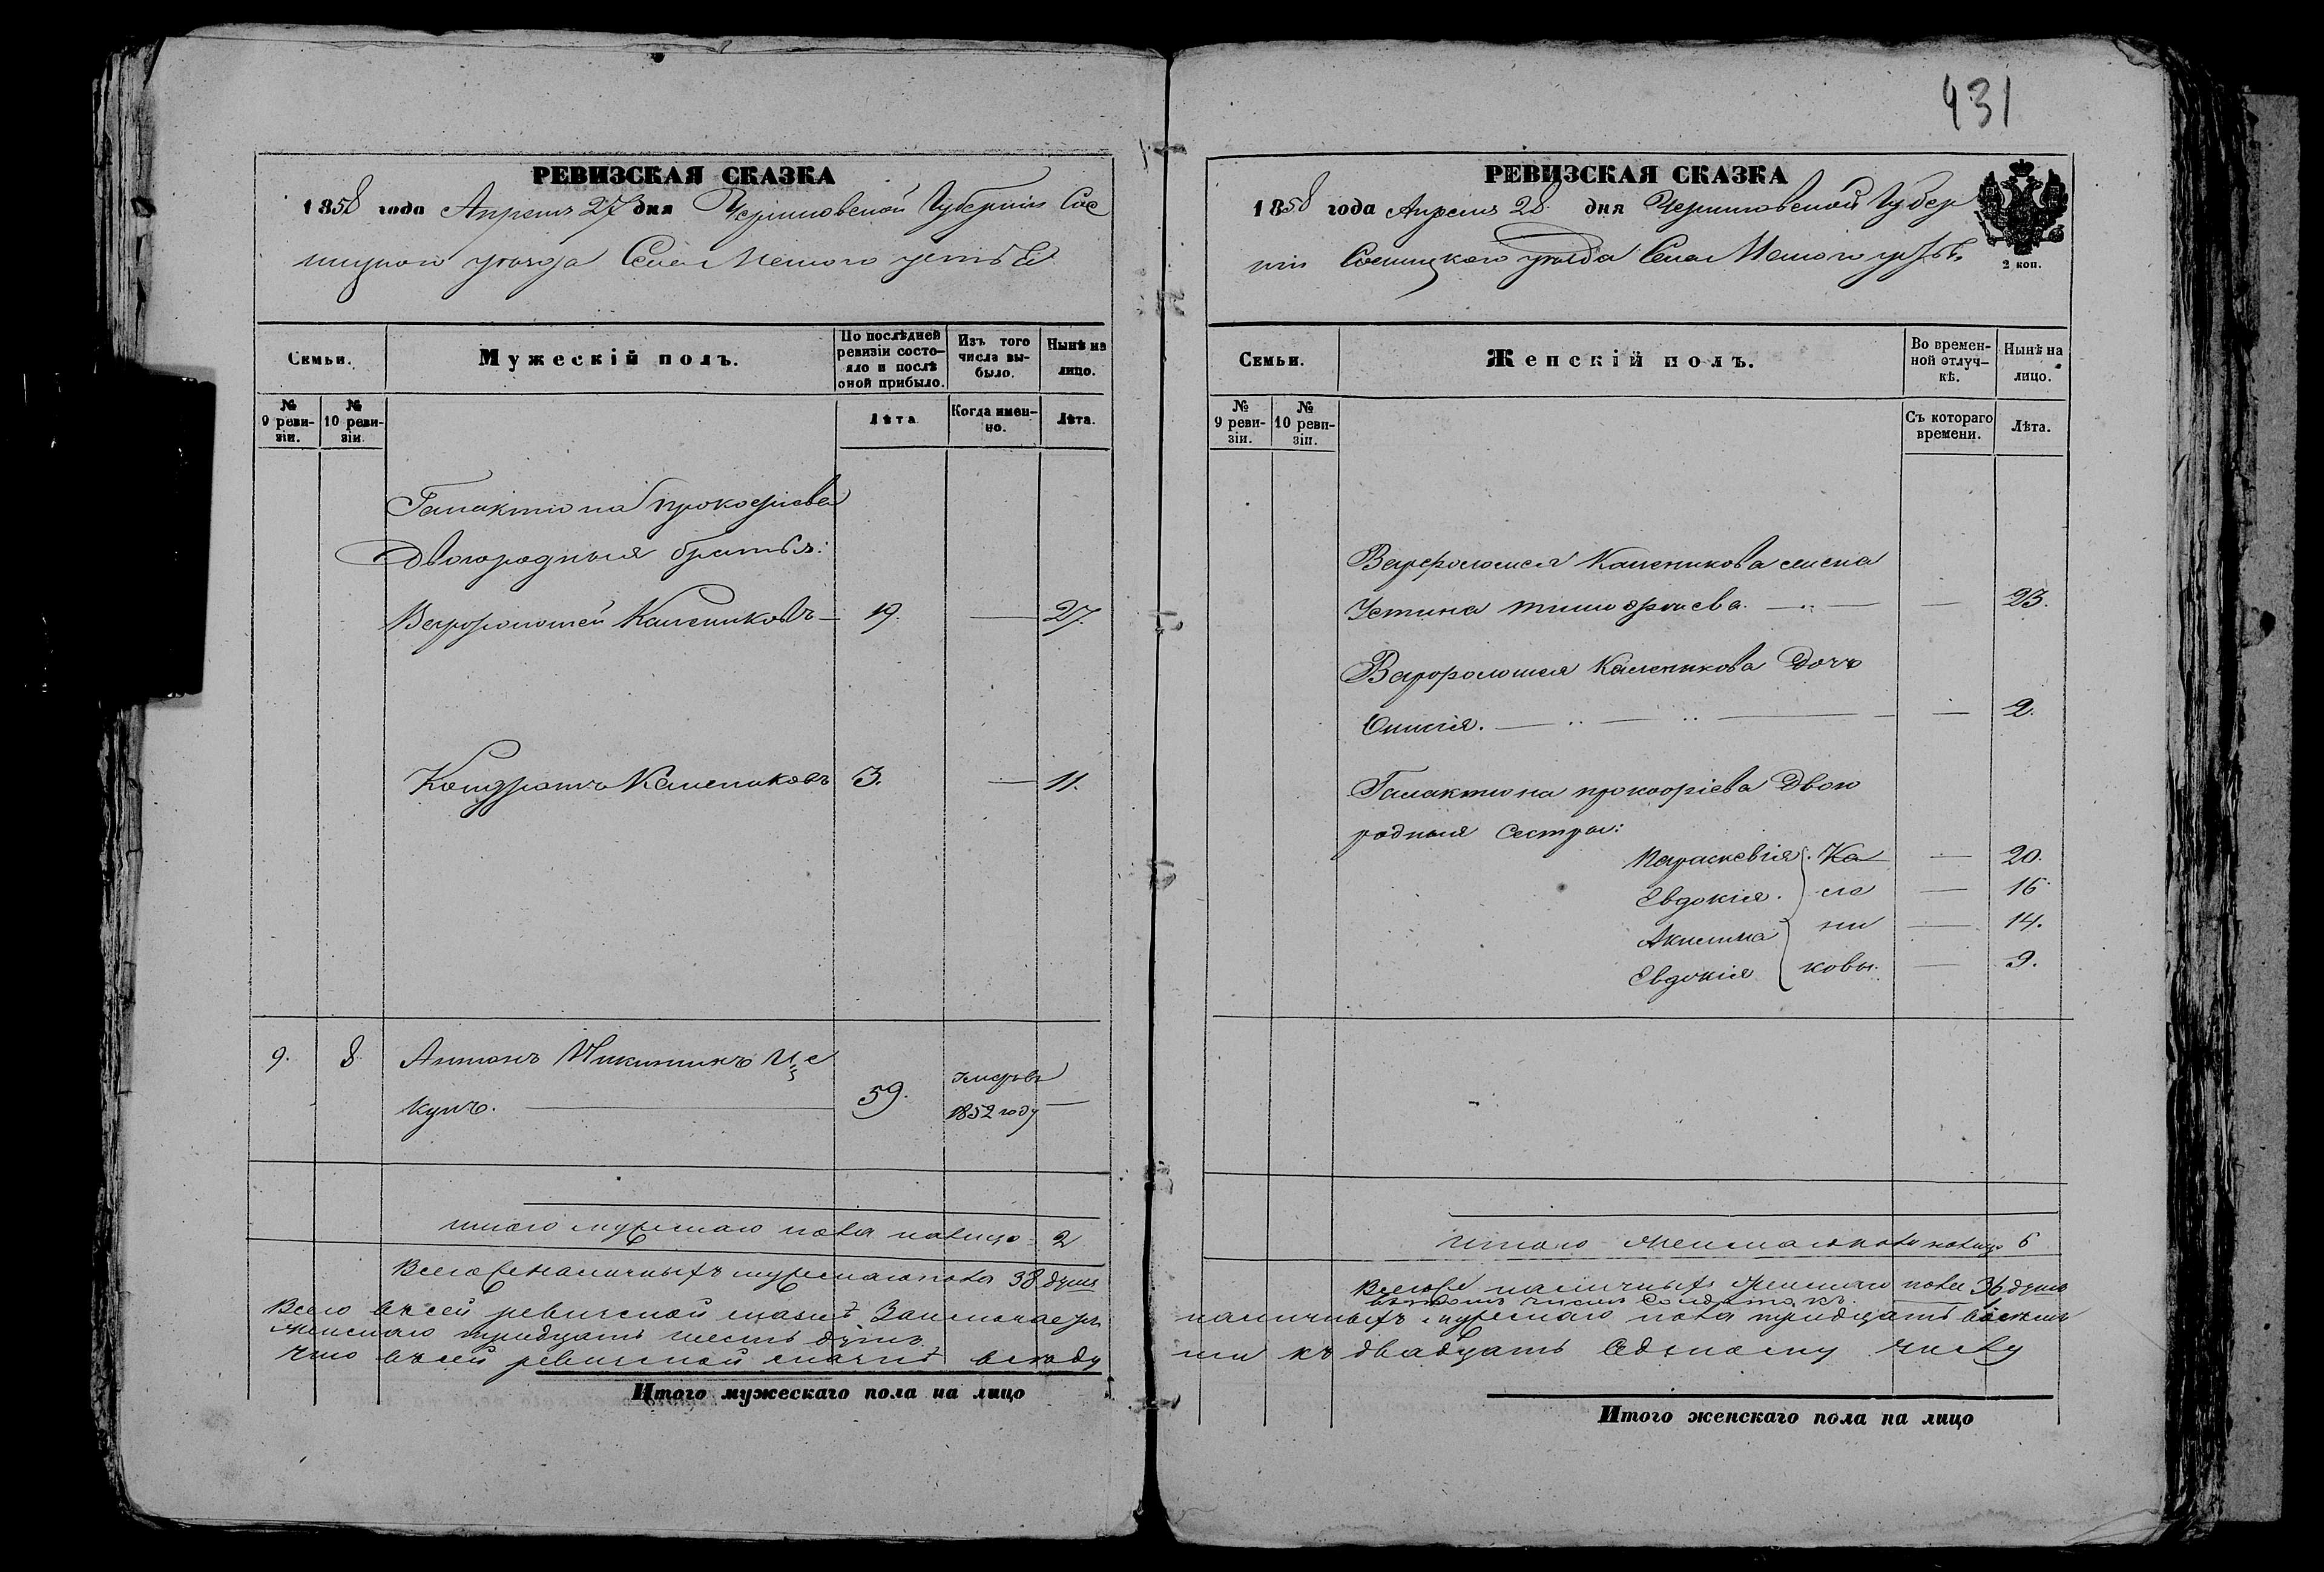 431
РЕВИЗСКАЯ СКАЗКА
1858 года Апреля 27 дня Черниговской Губернии Сос
ницкого уезда Села Малого устья
Семьи.
Мужескій полъ.
По послѣдней ревизіи состо-
яло и послѣ оной прибыло.
Изъ того числа вы-
было.
Нынѣ на лицо.
№ 9 реви-
зіи.
№ 10 реви-
зіи.
Лѣта
Когда имен-
но.
Лѣта.
Галактиона Прокофіева
Двоюродныя братья:
Варфоломей Калениковъ — 19. — 27.
Кондратъ Калениковъ 3. — 11.
9. 8. Антонъ Никитинъ
купъ. — 59. умеръ 1852 году —
итого мужескаго пола налицо 2
Всего наличныхъ мужескаго пола 38 душъ
Всего въ сей ревизской сказкѣ Заключается
женскаго тридцать шесть душъ
что въ сей ревизской сказкѣ
Итого мужескаго пола на лицо
РЕВИЗСКАЯ СКАЗКА
1858 года Апреля 28 дня Черниговской Губер
ніи Сосницкого уезда Села Малого устья
2 коп.
Семьи.
Женскій полъ.
Во времен-
ной отлуч-
кѣ.
Нынѣ на лицо.
№ 9 реви-
зіи.
№ 10 реви-
зіи.
Съ котораго времени.
Лѣта.
Варфоломея Каленикова жена
Устина Тимофеева. — — 23.
Варфоломея Каленикова Дочь
— — 2.
Галактиона прокофіева Двою
родныя Сестры:
Параскевія Ка — 20.
Евдокія. ле — 16.
Акилина ни — 14.
Евдокія ковы. — 9.
Итого женскаго пола налицо 6
Всего наличныхъ женскаго пола 36 душъ
въ томъ числѣ Солдатокъ 1
наличныхъ мужескаго пола тридцать восемь
къ двадцать седьмому числу
Итого женскаго пола на лицо